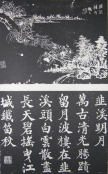 韭溪明月
萬古清光勝蹟
留月波樓在韭
溪頭白雲散盡
長天碧江
城鐵笛秋